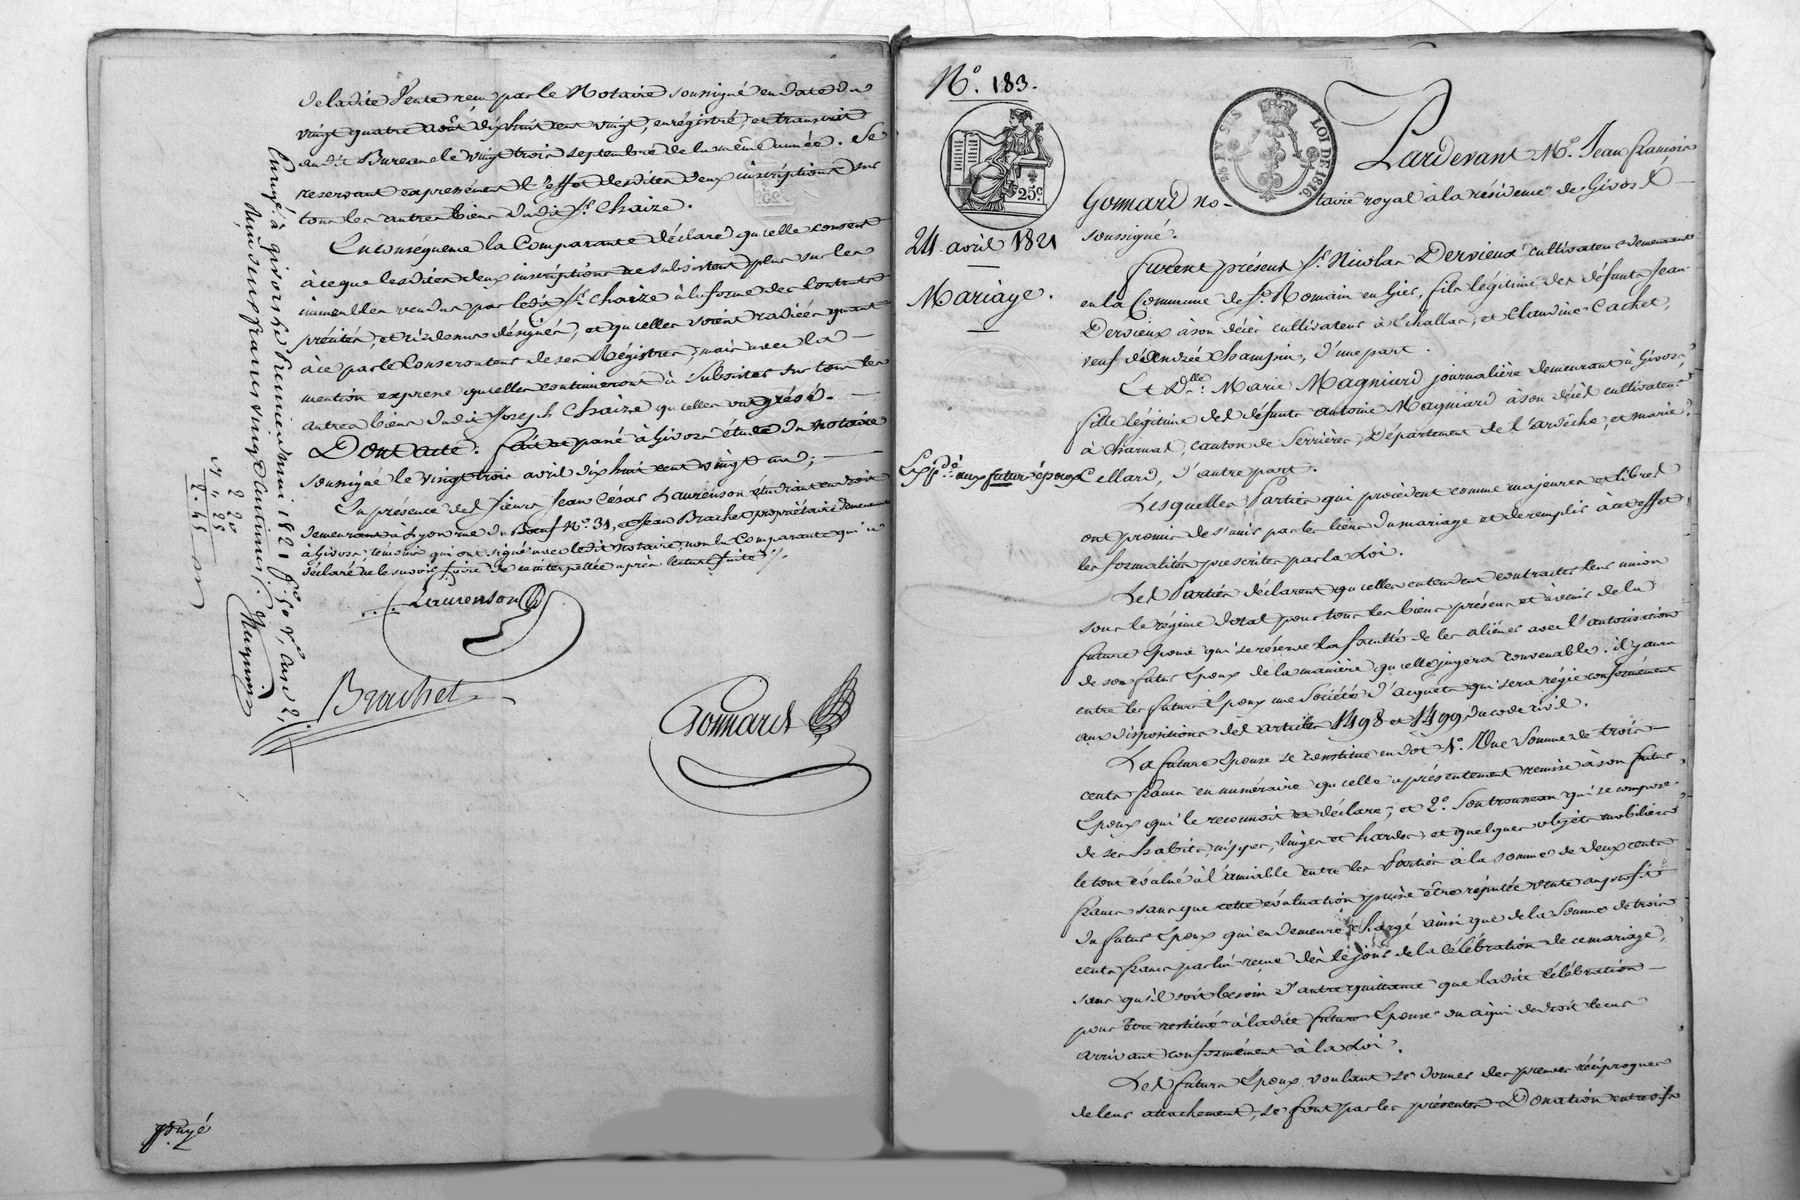 de ladite vente reçu par le Notaire soussigné en date du
vingt quatre août dix huit cent vingt, enregistré, et transcrit
au dit Bureau le vingt trois septembre de la même année. Se
reservant expressément l'effet desdites deux inscriptions sur
tous les autres biens du dit Sr. Chaize.
En conséquence la Comparante déclare qu'elle consent
à ce que lesdites deux inscriptions ne subsistent plus sur les
immeubles vendus par ledit Sr. Chaize à la forme des Contrats
précités, et ci-dessus désignés, et qu'elles soient radiées quant
à ce par le Conservateur de ses Régistres; mais avec la
mention expresse qu'elles continueront à Subsister sur tous les
autres biens du dit Joseph Chaize qu'elles ont grévé.
Dont acte. fait et passé à Givors étude du notaire
soussigné le vingt trois avril dix huit cent vingt un;
En présence des Sieurs Jean César Laurenson étudiant en droit
demeurant à Lyon rue du Boeuf No. 31, et Jean Brachet propriétaire demeurant
à Givors témoins qui ont signé avec ledit notaire, non la Comparante qui a
déclaré ne le savoir faire de ce interpellée après lecture faite
Laurenson
Brachet
Gomard
Enregé. à Givors le premier mai 1821 fo. 50 Vo. Case 2,
Reçu deux francs vingt centimes
2 20
2.45
No. 183.
LOI DE 1816
25c.
24 avril 1821
Mariage.
Expdé. aux futur époux
Pardevant Me. Jean françois
Gomard no-taire royal à la résidence de Givors
soussigné.
furent présent Sr. Nicolas Dervieux cultivateur demeurant
en la Commune de St. Romain en Gier, fils légitime des défunts Jean
Dervieux à son décès cultivateur à Echallas, et Claudine Cachet,
veuf d'Andrée Champin, d'une part.
Et Dlle. Marie Magniard journalière demeurant à Givors,
fille légitime des défunts antoine Magniard à son décès cultivateur
à Charnas, canton de Serrières, Département de l'ardèche, et marie
Cellard, d'autre part.
Lesquelles Parties qui procèdent comme majeures et libres
ont promis de s'unir par les liens du mariage et de remplir à cet effet
les formalités prescrites par la Loi.
Les Parties déclarent qu'elles entendent contracter leur union
sous le régime dotal pour tous les biens présens et avenir de la
future Epouse qui se réserve la faculté de les aliéner avec l'autorisation
de son futur Epoux de la manière qu'elle jugera convenable: il y aura
entre les futurs Epoux une Société d'acquêts qui sera régie conformément
aux dispositions des articles 1498 et 1499 du code civil.
La future Epouse se constitue en dot 1o. Une Somme de trois
cents francs en numéraire qu'elle a présentement remise à son futur
Epoux qui le reconnoit et déclare; et 2o. Son trousseau qui se compose
de ses habits, nippes, linges et hardes et quelques objets mobiliers
le tout évalué à l'amiable entre les Parties à la somme de deux cents
francs sans que cette évaluation puisse être réputée vente au profit
du futur Epoux qui en demeure chargé ainsi que de la Somme de trois
cents francs par lui reçue dès le jour de la célébration de ce mariage,
sans qu'il soit besoin d'autre quittance que ladite célébration
pour être restitué à ladite future Epouse ou à qui de droit le cas
arrivant conformément à la Loi.
Les futurs Epoux voulant se donner des preuves réciproques
de leur attachement, se font par les présentes Donation entrevifs